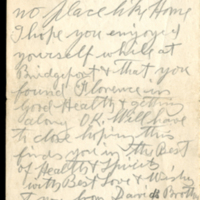 no place like Home
I hope you enjoyed
yourself while at
Bridgeport & that you
found Florence in
Good Health & getting
along O.K. Will have
to close hoping this
finds you in the Best
of Health & Spirits
with Best Love & Wishes
to you from David & Brother